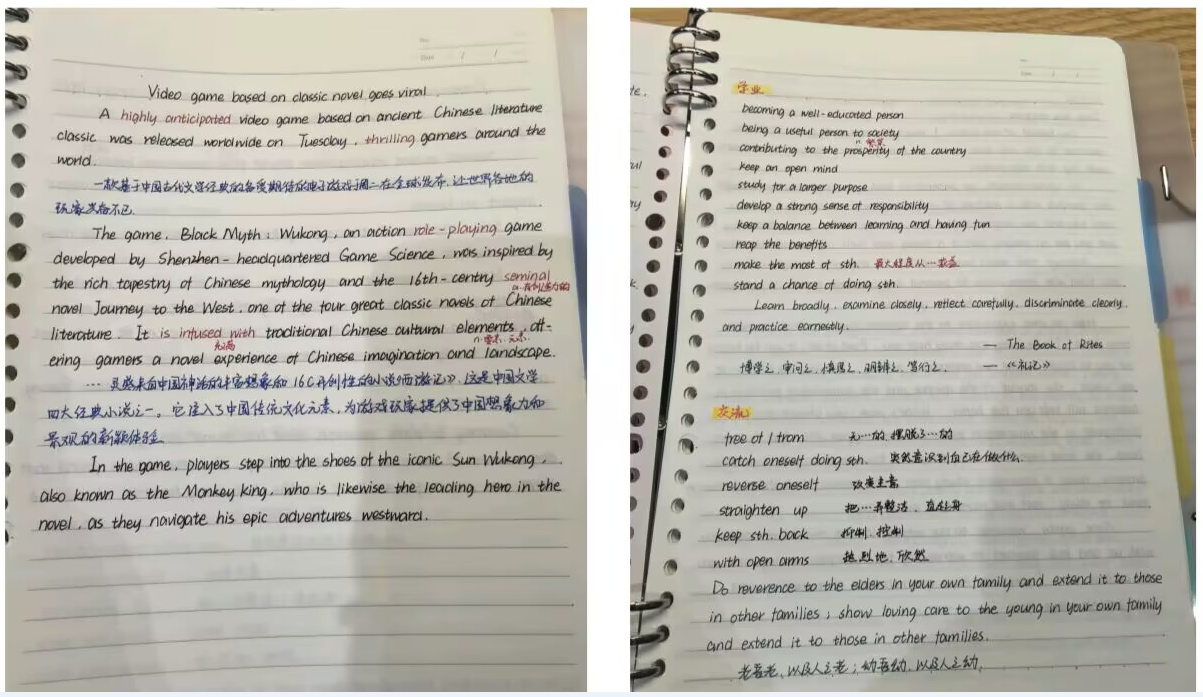 Video game based on classic novel goes viral.
A highly anticipated video game based on ancient Chinese literature
classic was released worldwide on Tuesday, thrilling gamers around the
world.
一款基于中国古代文学经典的备受期待的电子游戏于周二在全球发布,让世界各地的
玩家兴奋不已.
The game, Black Myth: Wukong, an action role-playing game
developed by Shenzhen-headquartered Game Science, was inspired by
the rich tapestry of Chinese mythology and the 16th-centry seminal
novel Journey to the West, one of the four great classic novels of Chinese
literature. It is infused with traditional Chinese cultural elements, off-
充满
ering gamers a novel experience of Chinese imagination and landscape.
… 灵感来自中国神话的丰富想象和16C开创性的小说《西游记》,这是中国文学
四大经典小说之一。它注入了中国传统文化元素,为游戏玩家提供了中国想象力和
景观的新颖体验
In the game, players step into the shoes of the iconic Sun Wukong,
also known as the Monkey king, who is likewise the leading hero in the
novel, as they navigate his epic adventures westward.
学业
becoming a well-educated person
being a useful person to society
n. 繁荣
contributing to the prosperity of the country
keep an open mind
study for a larger purpose
develop a strong sense of responsibility
keep a balance between learning and having fun
reap the benefits
make the most of sth. 最大程度从…获益
stand a chance of doing sth.
Learn broadly, examine closely, reflect carefully, discriminate clearly,
and practice earnestly.
— The Book of Rites
博学之,审问之,慎思之,明辨之,笃行之. —《礼记》
交流
free of / from 无…的 摆脱了…的
catch oneself doing sth. 突然意识到自己在做什么
reverse oneself 改变主意
straighten up 把…弄整洁,直起身
keep sth. back 抑制,控制
with open arms 热烈地,欣然
Do reverence to the elders in your own family and extend it to those
in other families; show loving care to the young in your own family
and extend it to those in other families.
老吾老,以及人之老;幼吾幼,以及人之幼.